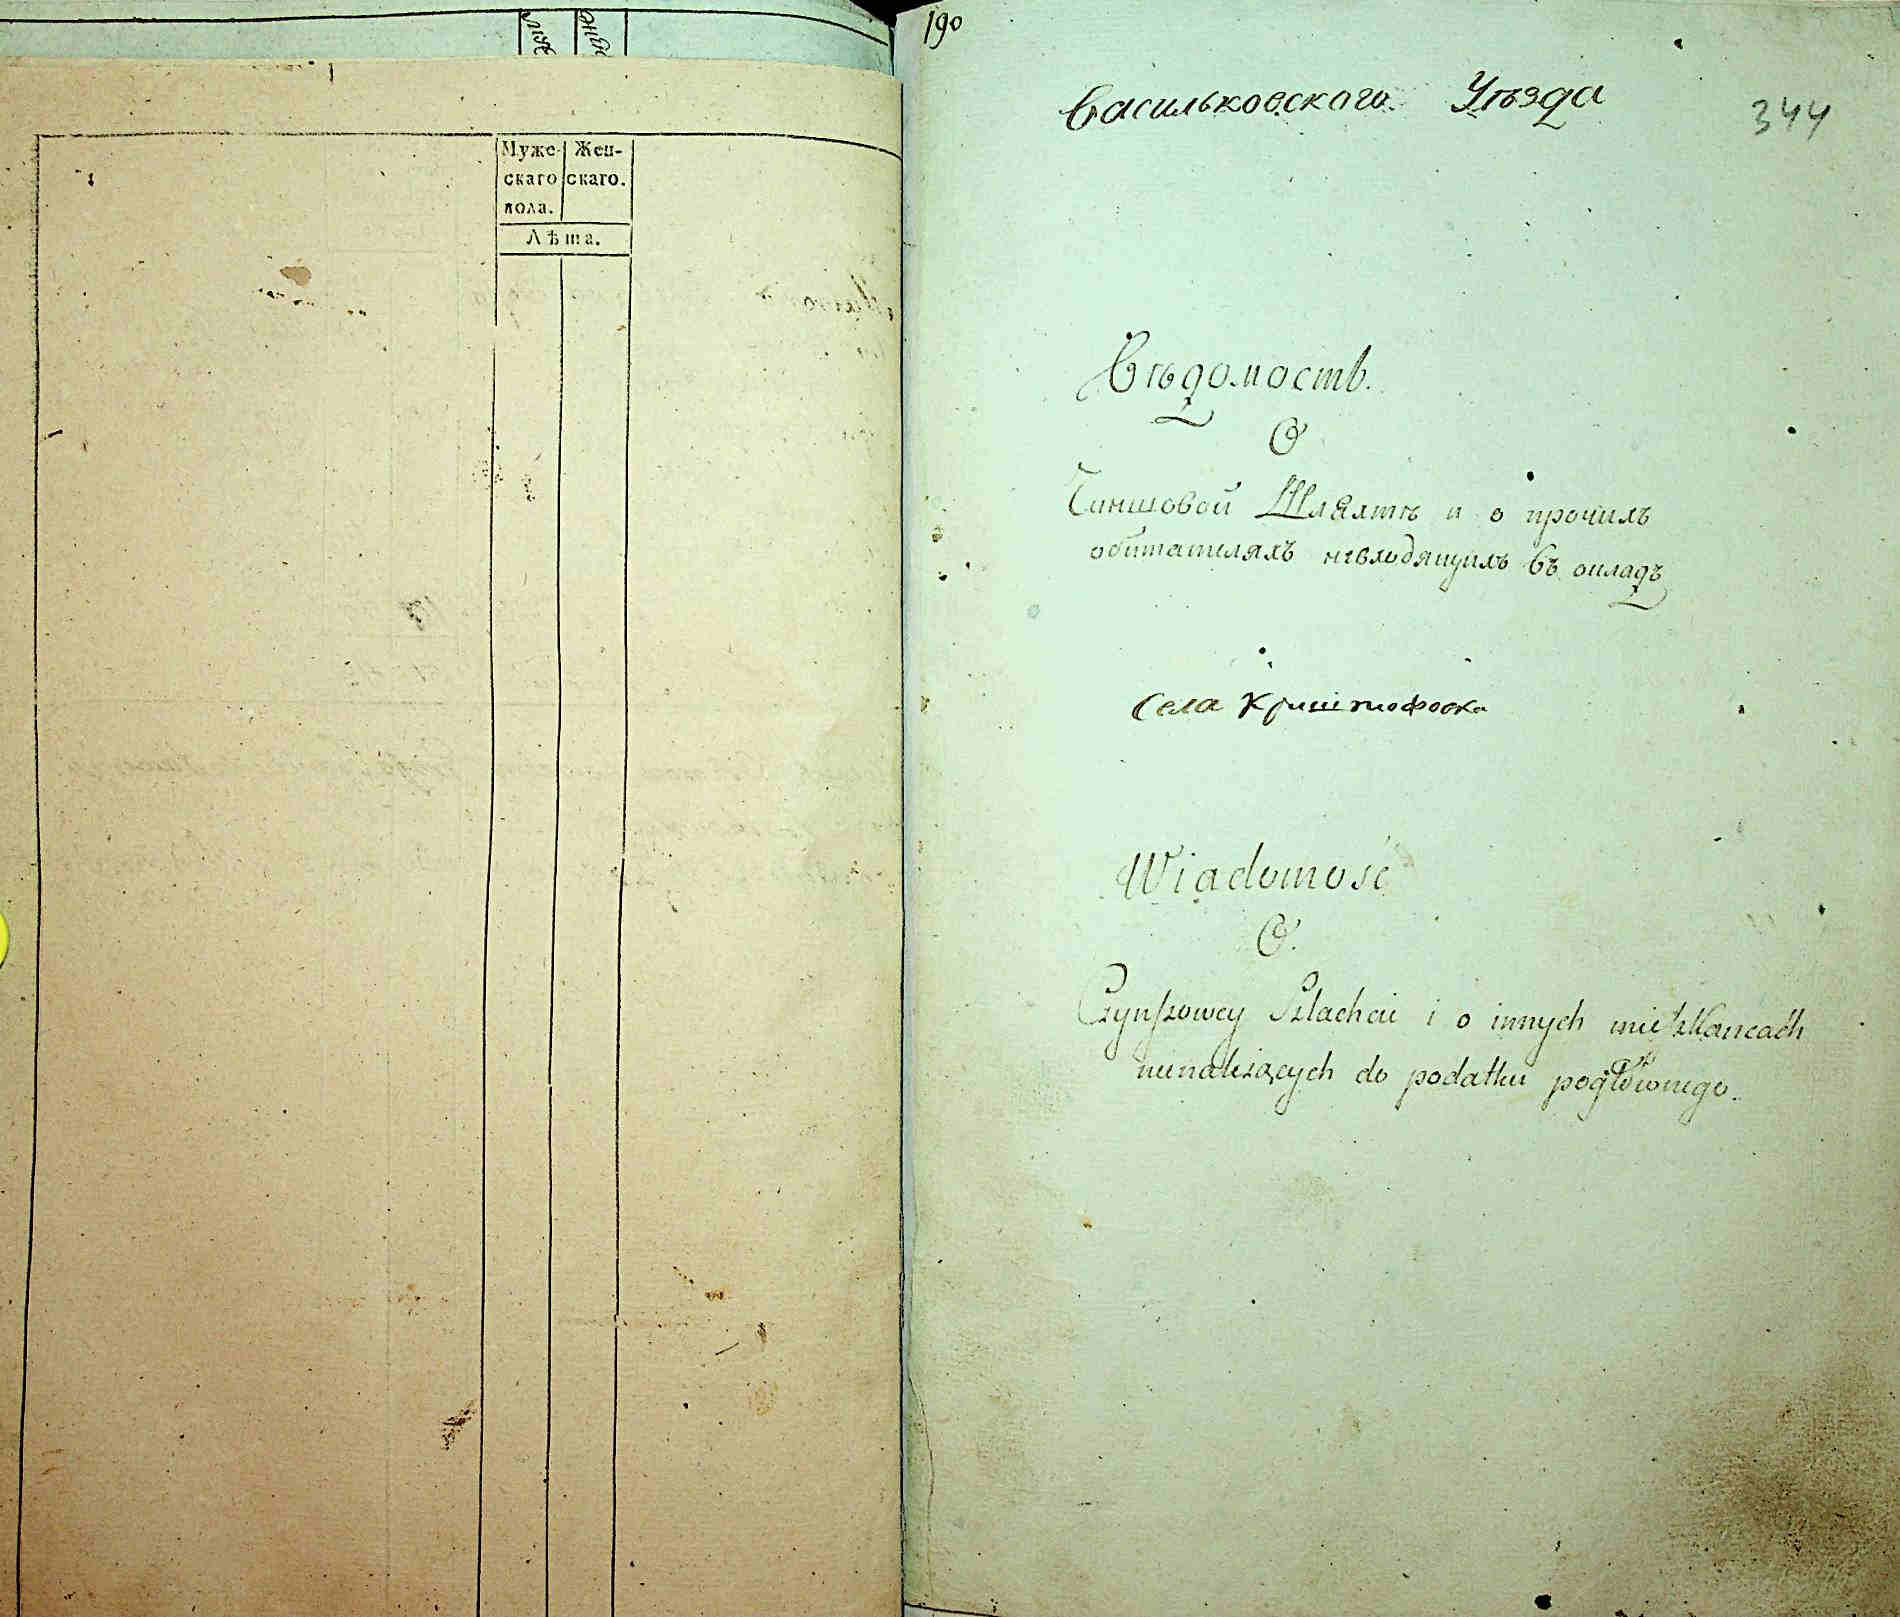 Муже- Жен-
скаго скаго.
пола.
Лѣта.
190
344
Васильковского Уѣзда
Вѣдомость.
О
Чиншовой Шляхтѣ и о прочихъ
обитателяхъ невходящихъ въ окладъ
Села Криштофовка
Wiadomość
O.
Czynszowey Szlachcie i o innych mieszkancach
nienależących do podatku pogłownego.